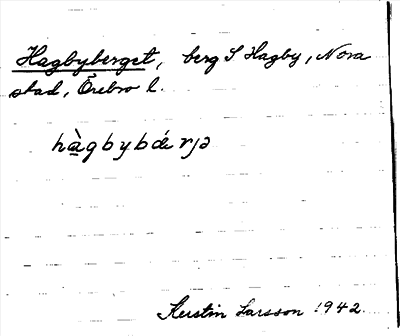 Hagbyberget, berg S Hagby, Nora
stad, Örebro l.
hàgbybǽrjə
Kerstin Larsson 1942